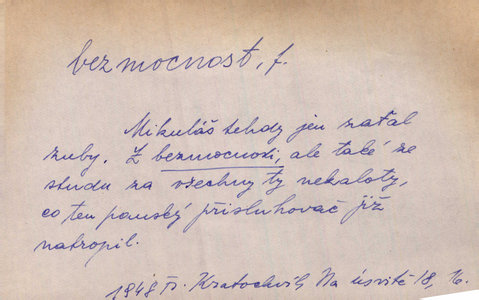 bezmocnost, f.
Mikuláš tehdy jen zaťal
zuby. Z bezmocnosti, ale také ze
studu za všechny ty nekaloty,
co ten panský přisluhovač již
natropil.
1948 Kratochvíl, Na úsvitě 18, 16.